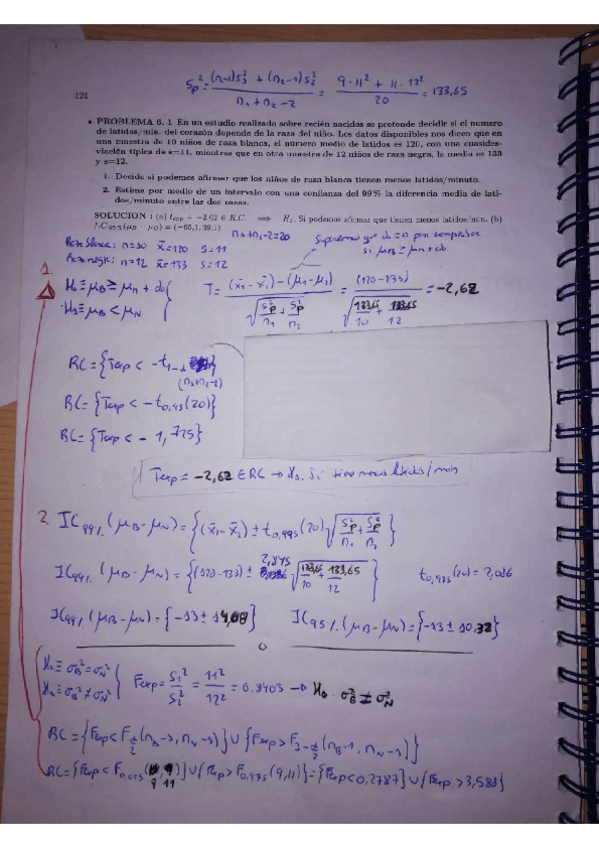 Sp² = (n₁-1)S₁² + (n₂-1)S₂² / n₁+n₂-2 = 9·11² + 11·12² / 20 = 133,65
121
• PROBLEMA 6. 1 En un estudio realizado sobre recién nacidos se pretende decidir si el numero
de latidos/min. del corazón depende de la raza del niño. Los datos disponibles nos dicen que en
una muestra de 10 niños de raza blanca, el número medio de latidos es 120, con una cuasides-
viación típica de s=11, mientras que en otra muestra de 12 niños de raza negra, le media es 133
y s=12.
1. Decide si podemos afirmar que los niños de raza blanca tienen menos latidos/minuto.
2. Estima por medio de un intervalo con una confianza del 99% la diferencia media de lati-
dos/minuto entre las dos razas.
SOLUCION : (a) t_exp = -2.62 ∈ R.C. ⟹ H₁. Si podemos afirmar que tienen menos latidos/m.n. (b)
n₁+n₂-2=20
Raza blanca: n=10 x̄=120 S=11
Raza negra: n=12 x̄=133 S=12
1.
H₀≡μB ≥ μn
H₁≡μB < μN
T = (x̄₁-x̄₂)-(μ₁-μ₂) / √(Sp²/n₁ + Sp²/n₂) = (120-133) / √(133,65/10 + 133,65/12) = -2,62
(n₁+n₂-2)
RC={Texp < -t₀,₉₅(20)}
RC={Texp < -1,725}
Texp = -2,62 ∈ RC → H₁. Si tiene menos latidos/min
2. IC99%(μB-μN) = {(x̄₁-x̄₂) ± t₀,₉₉₅(20) √(Sp²/n₁ + Sp²/n₂)}
IC99%(μB-μN) = {(120-133) ± 2,845 √(133,65/10 + 133,65/12)}
t₀,₉₇₅(20) = 2,086
IC99%(μB-μN) = {-13 ± 14,08}
IC95%(μB-μN) = {-13 ± 10,32}
H₀≡σB²=σN²
H₁≡σB²≠σN²
Fexp = S₁²/S₂² = 11²/12² = 0,8403 → H₀ σB² ≠ σN²
RC={Fexp < F_α/2(nB-1, nN-1)} ∪ {Fexp > F₁-α/2(nB-1, nN-1)}
RC={Fexp < F₀,₀₂₅(9, 11)} ∪ {Fexp > F₀,₉₇₅(9,11)} = {Fexp < 0,2787} ∪ {Fexp > 3,588}